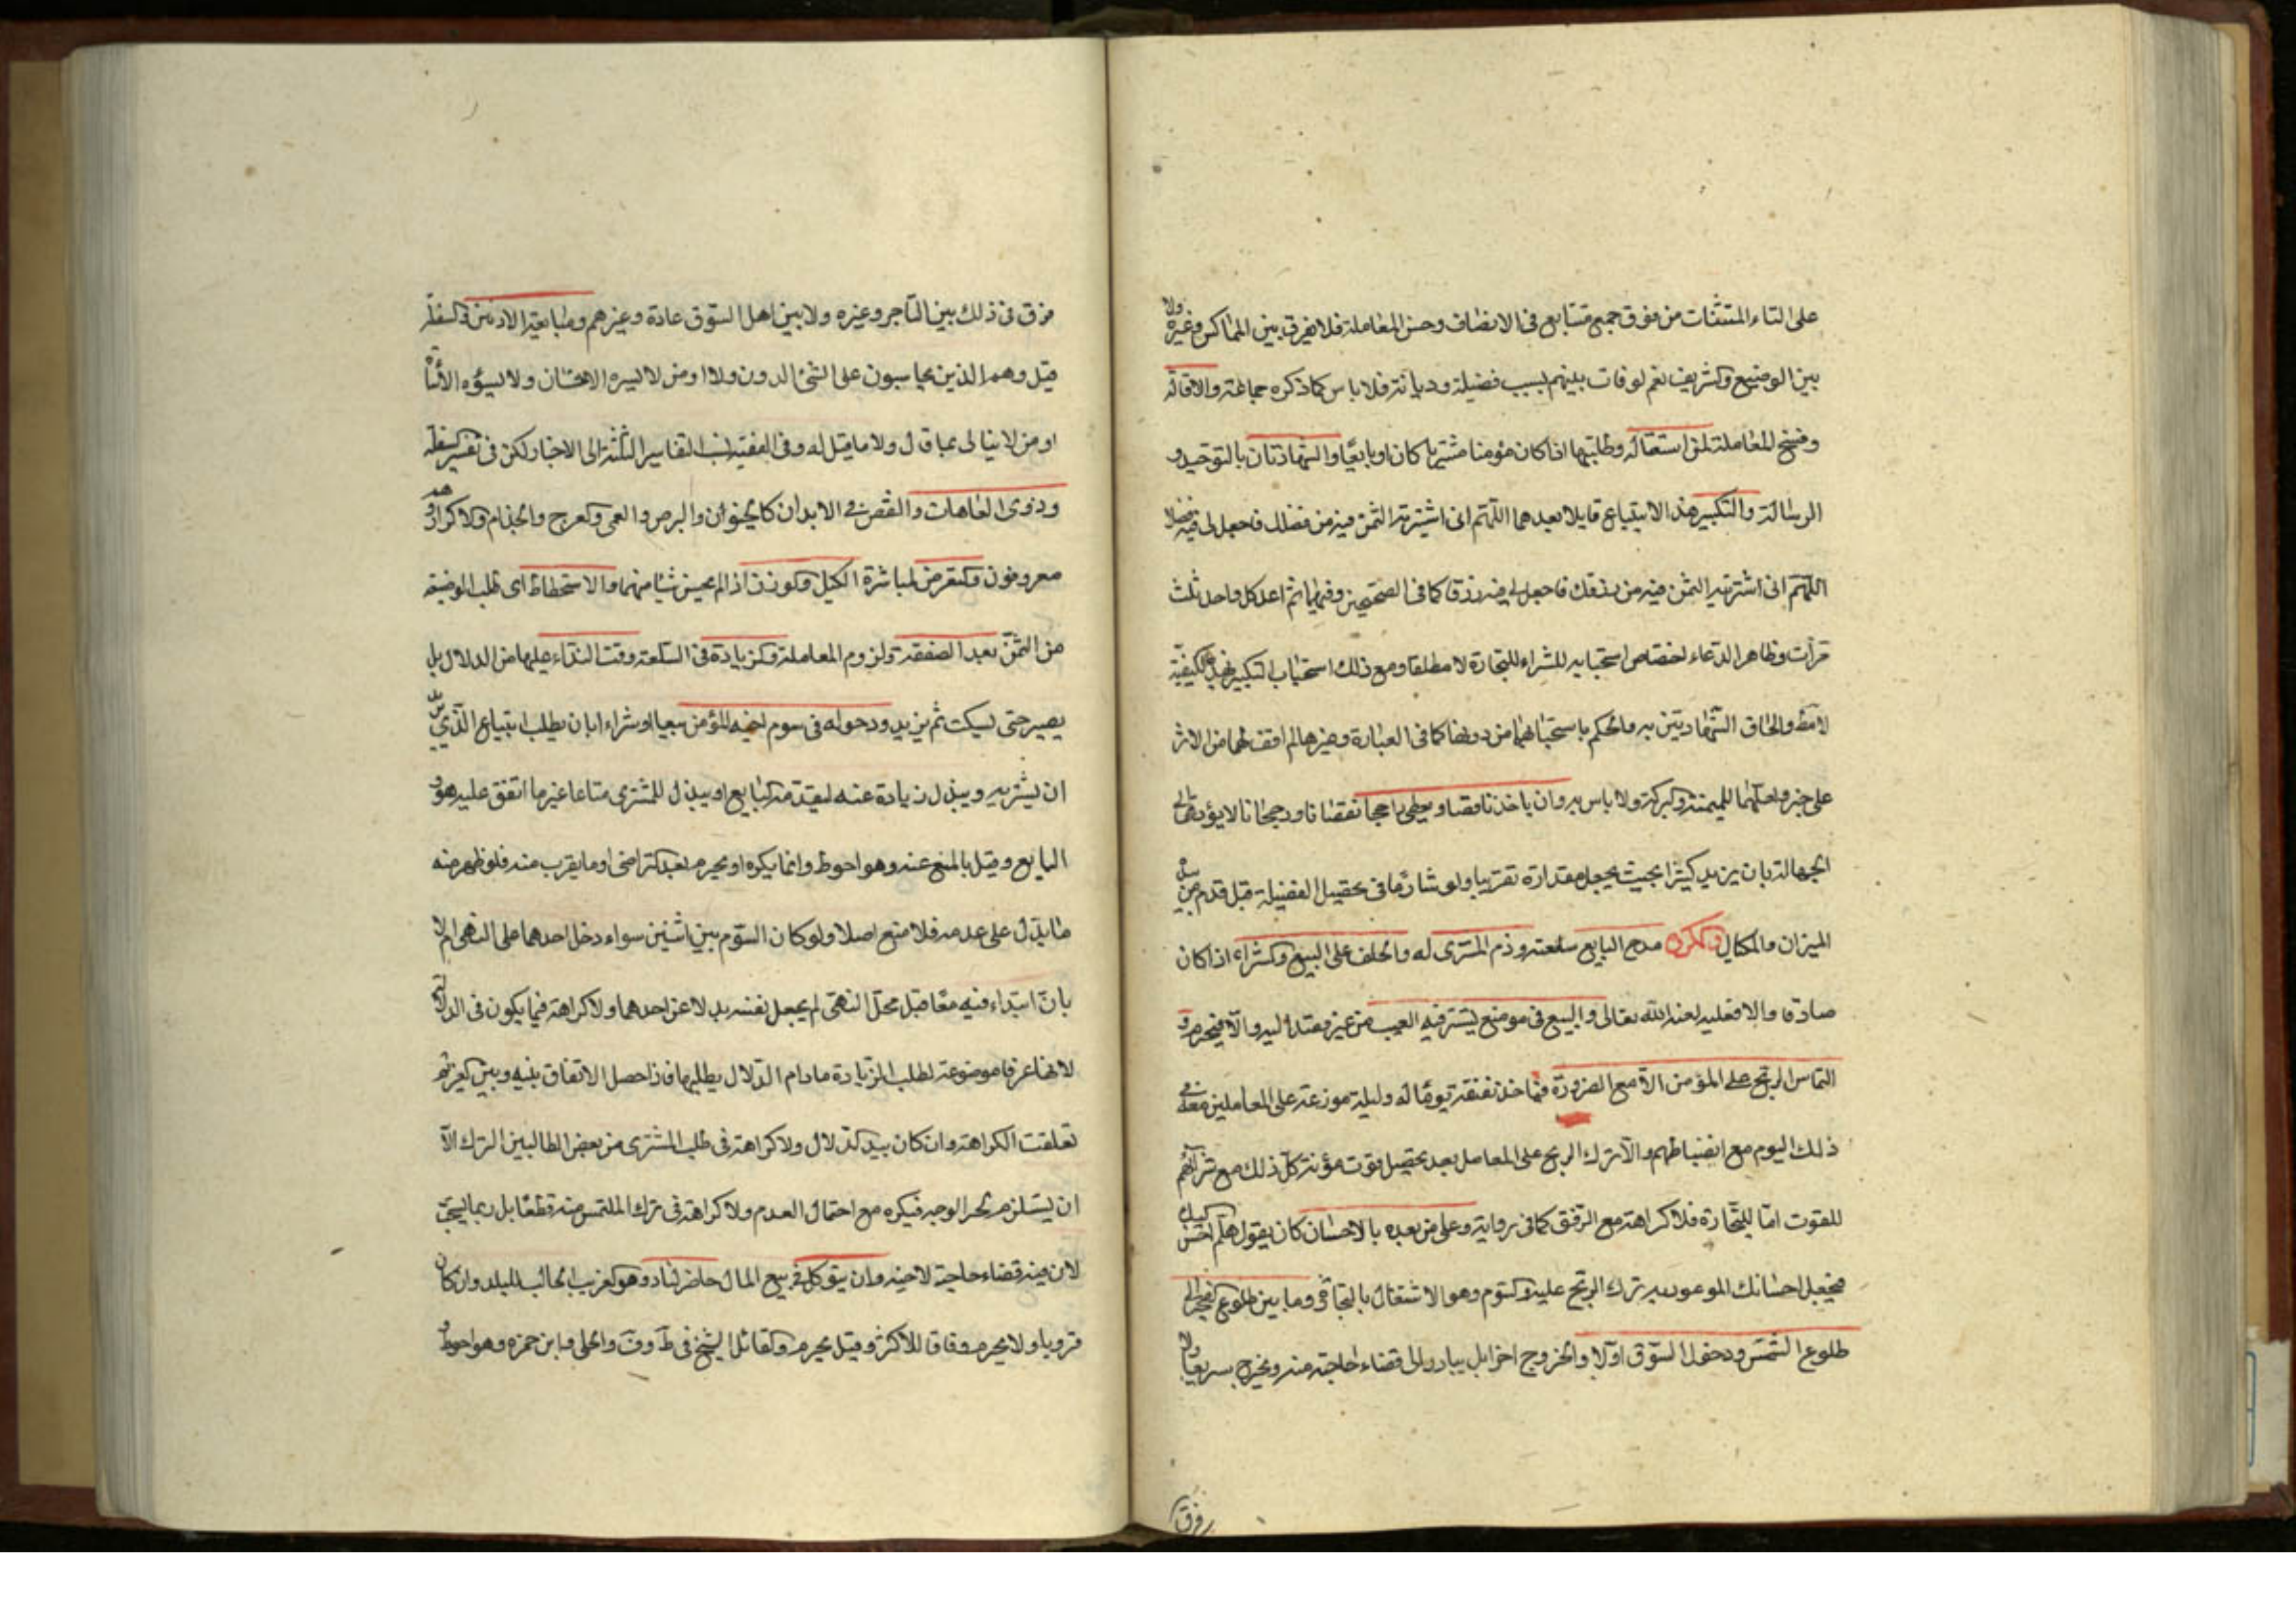 على التاء المتثنات من فوق جميع متتابع فى الانصاف وحسن المعاملة فلا يفرق بين المماكس وغيره ولا
بين الوضيع والشريف نعم لو فات بينهم بسبب فضيلة وديانة فلا باس كما ذكره جماعة والاقالة
وفسخ المعاملة لمن استقاله وطلبها اذا كان مؤمنا مشتريا كان او بايعا والشهادتان بالتوحيد و
الرسالة والتكبير هذا الابتياع قايلا بعدهما اللهم انى اشتريته التمس فيه من فضلك فاجعل لى فيه فضلا
اللهم انى اشتريته التمس فيه من رزقك فاجعل لى فيه رزقا كما فى الصحيحين وفيهما ثم اعد كل واحد ثلث
مرات وظاهر الدعاء اختصاص استحبابه للشراء للتجارة لا مطلقا ومع ذلك استحباب التكبير بهذه الكيفية
لا مط والحاق الشهادتين به والحكم باستحبابهما من دونها كما فى العبارة وغيرها لم اقف لها من الاثر
على خبر ولعلهما لليمنة والبركة ولا باس به وان ياخذ ناقصا ويعطى راجحا نقصانا ورجحانا لا يؤديان الى
الجهالة بان يزيد كثيرا بحيث يجهل مقداره تقريبا ولو تشاحا فى تحصيل الفضيلة قيل قدم من بيده
الميزان والمكيال والمكروه مدح البايع سلعته وذم المشترى له والحلف على البيع والشراء اذا كان
صادقا والا فعليه لعنة الله تعالى والبيع فى موضع يستتر فيه العيب من غير قصد اليه والا فيحرم و
التماس الربح على المؤمن الا مع الضرورة فياخذ نفقة يوم له وليلة موزعة على المعاملين معه فى
ذلك اليوم مع انضباطهم والا ترك الربح على المعامل بعد تحصيل قوت مؤنته كل ذلك مع شرائهم
للقوت اما للتجارة فلا كراهة مع الرفق كما فى رواية وعلى من يعده بالاحسان كان يقول هلم احسن اليك
فيجعل احسانك الموعود به ترك الربح عليه والسوم وهو الاشتغال بالتجارة وما بين طلوع الفجر الى
طلوع الشمس ودخول السوق اولا والخروج اخرا بل يبادر الى قضاء حاجته منه ويخرج سريعا ولا
فرق
فرق فى ذلك بين التاجر وغيره ولا بين اهل السوق عادة وغيرهم ومبايعة الادنين والسفلة
قيل وهم الذين يحاسبون على الشئ الدون ولا او من لا يسره الاحسان ولا يسؤه الاسائة
او من لا يبالى بما قال ولا ما قيل له وفى الفقيه نسب التفاسير الثلثة الى الاخبار لكن فى تفسير السفلة
وذوى العاهات والنقص فى الابدان كالجنون والبرص والعمى والعرج والجذام والاكراد
معروفون والتعرض لمباشرة الكيل والوزن اذا لم يحسن شيئا منهما والاستحطاط اى طلب الوضيعة
من الثمن بعد الصفقة ولزوم المعاملة والزيادة فى السلعة وقت النداء عليها من الدلال بل
يصبر حتى يسكت ثم يزيد ودخوله فى سوم اخيه المؤمن بيعا او شراء بان يطلب ابتياع الذى يريد
ان يشتريه ويبذل زيادة عنه ليقدمه البايع او يبذل للمشترى متاعا غير ما اتفق عليه هو و
البايع وقيل بالمنع عنه وهو احوط وانما يكره او يحرم بعد التراضى او ما يقرب منه فلو ظهر منه
ما يدل على عدمه فلا منع اصلا ولو كان السوم بين اثنين سواء دخل احدهما على النهى ام لا
بان ابتداء فيه معا قبل محل النهى لم يجعل نفسه بدلا عن احدهما ولا كراهة فيما يكون فى الدلالة
لانها عرفا موضوعة لطلب الزيادة مادام الدلال يطلبها فاذا حصل الاتفاق بينه وبين الغريم
تعلقت الكراهة وان كان بيد الدلال ولا كراهة فى طلب المشترى من بعض الطالبين الترك الا
ان يستلزم الوجه فيكره مع احتمال العدم ولا كراهة فى ترك الملتمس منه قطعا بل ربما يستحب
لان فيه قضاء حاجة لاخيه وان يتوكل فى بيع المال حاضر لباد وهو الغريب الجالب للبلد وان كان
قرويا ولا يحرم وفاقا للاكثر وقيل يحرم والقائل الشيخ فى ط وف والحلى وابن حمزه وهو احوط و